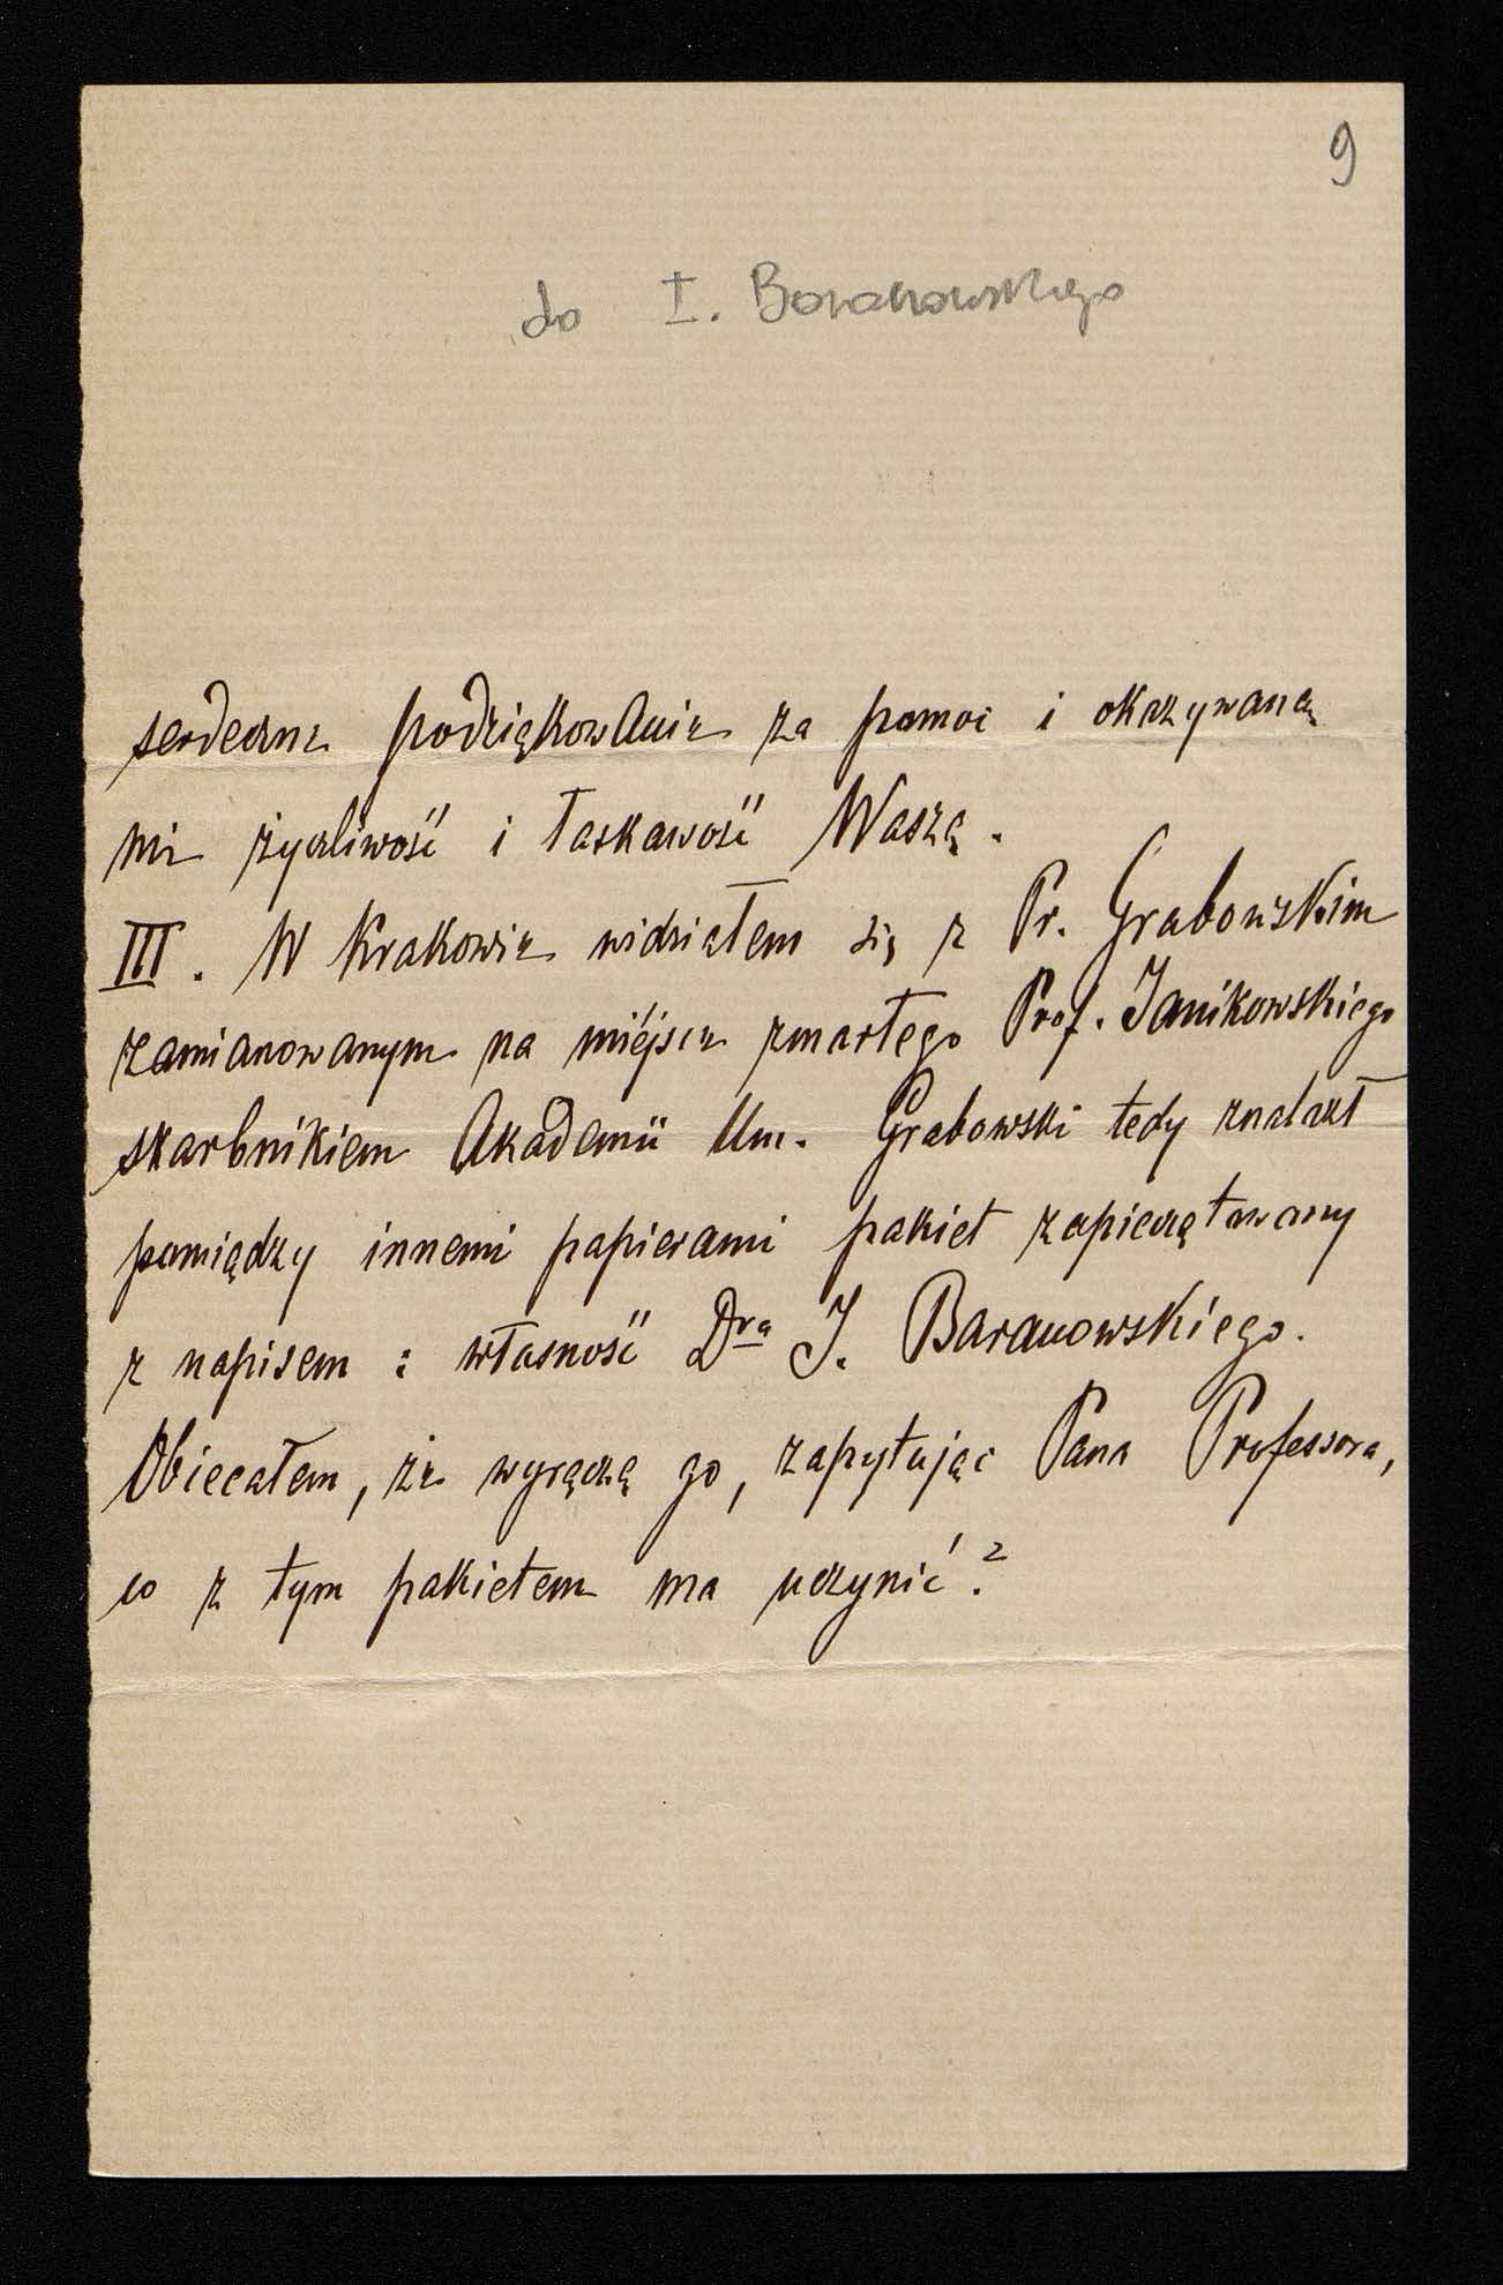 9
do I. Baranowskiego
serdeczne podziękowanie za pomoc i okazywaną
mi życzliwość i łaskawość Waszą.
III. W Krakowie widziałem się z Pr. Grabowskim
zamianowanym na miéjsce zmarłego Prof. Janikowskiego
skarbnikiem Akademii Um. Grabowski tedy znalazł
pomiędzy innemi papierami pakiet zapieczętowany
z napisem: własność Dra I. Baranowskiego.
Obiecałem, że wyręczę go, zapytując Pana Professora,
co z tym pakietem ma uczynić?